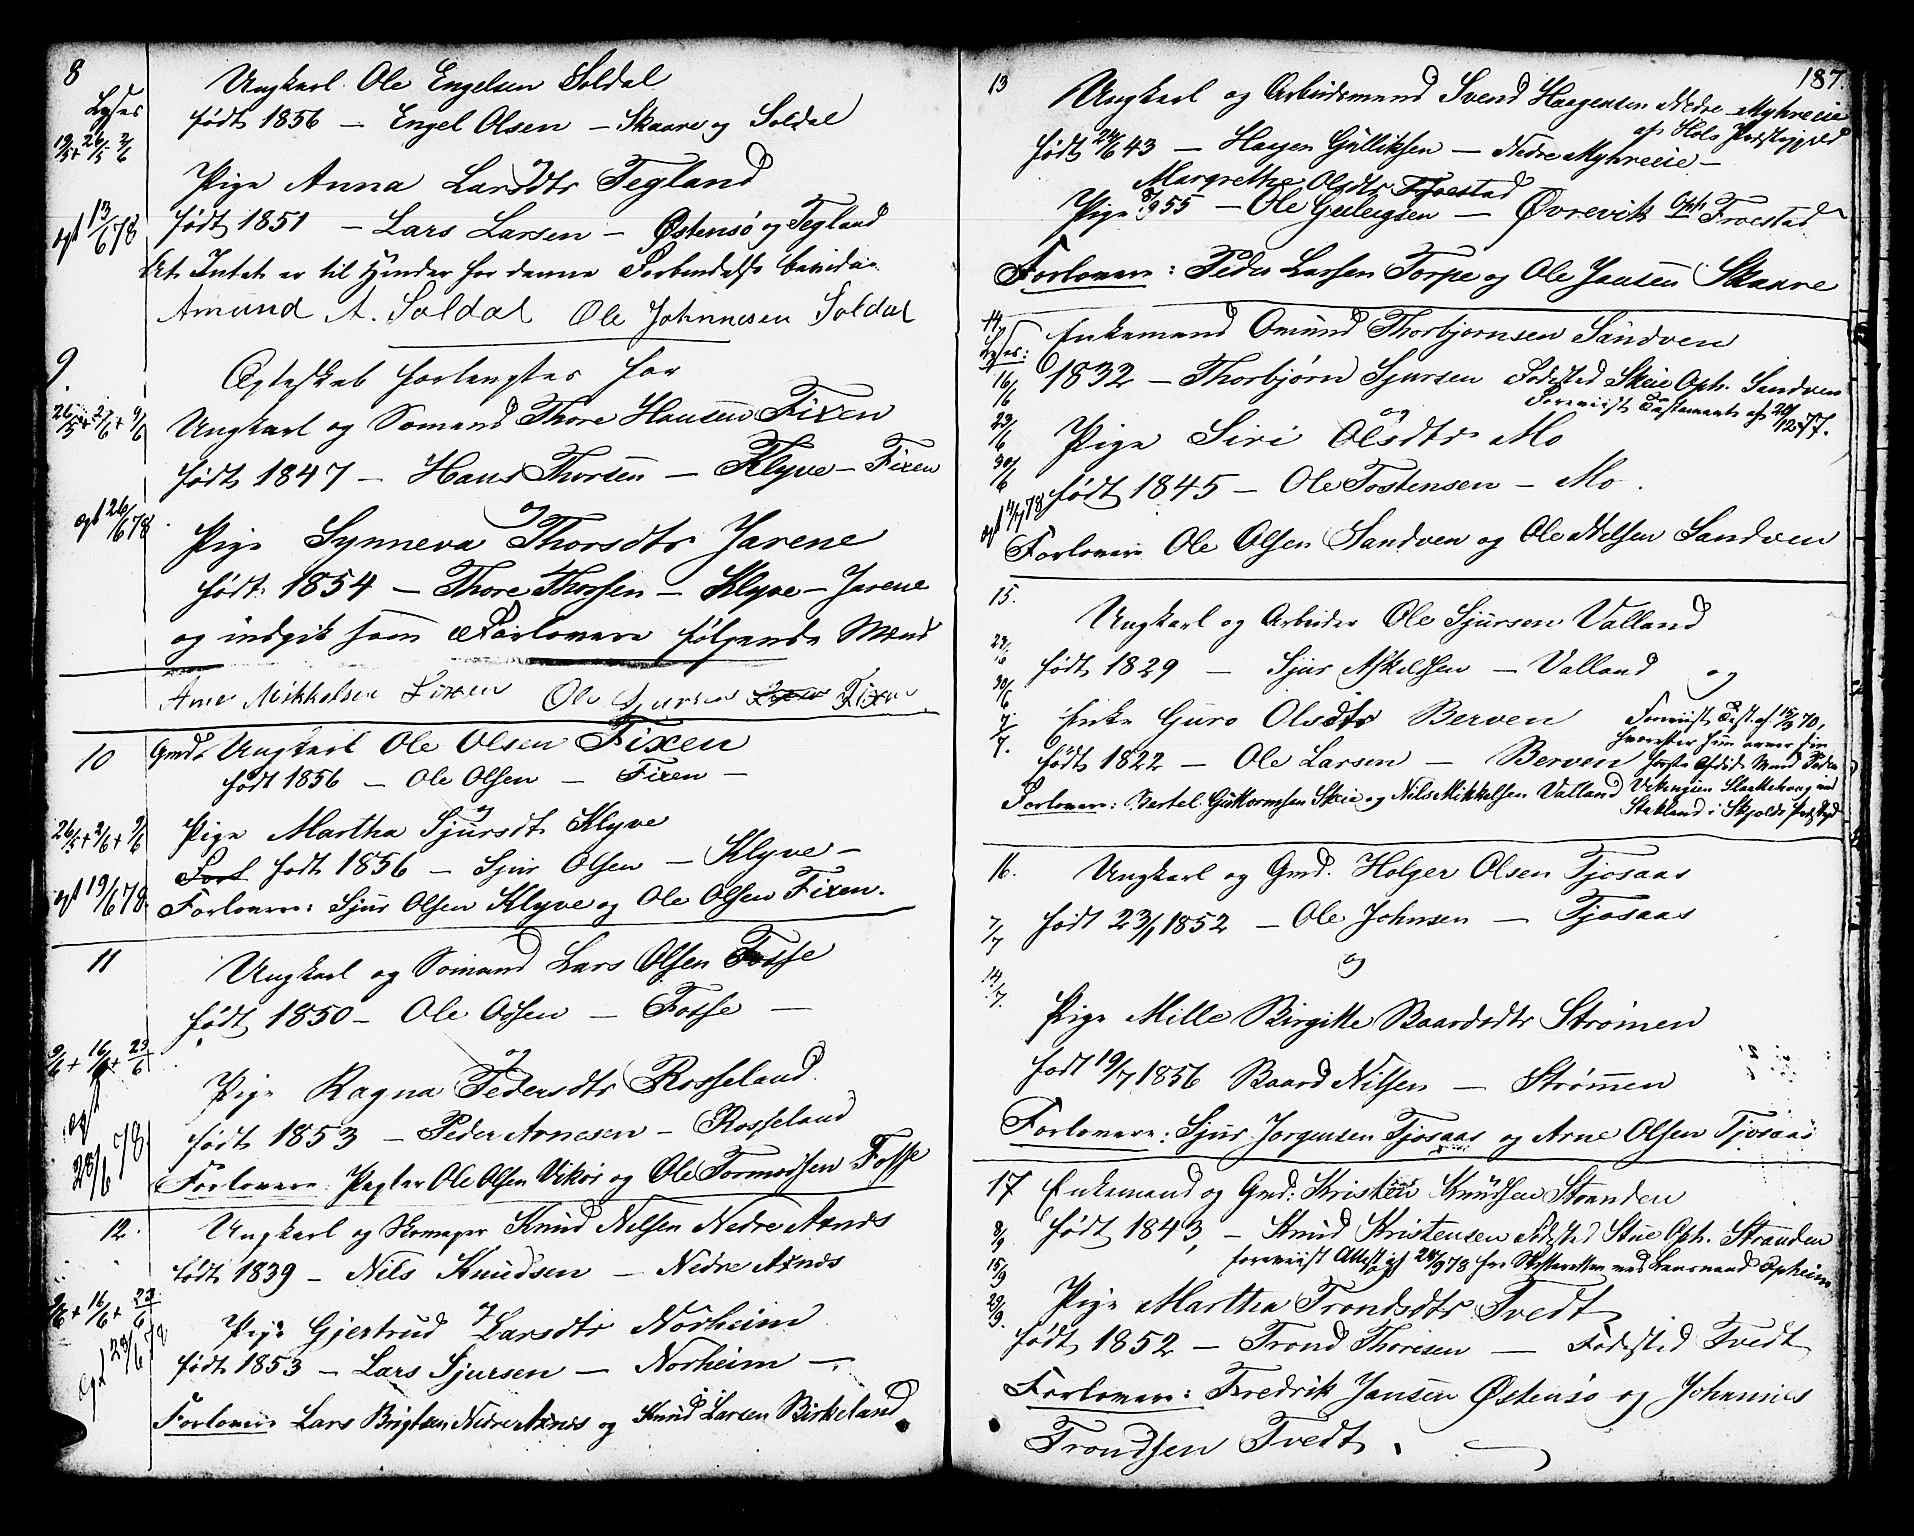 8
Lyses
19/5 + 26/5 2/6
Ungkarl Ole Engelsen Soldal
født 1856 — Engel Olsen — Skaare og Soldal
og
Pige Anna Larsdtr Tegland
født 1851 — Lars Larsen — Østensø og Tegland
ægt 13/6 78
At Intet er til Hinder for denne Forbindelse bevidne
Amund A. Soldal Ole Johnnesen Soldal
9
Ægteskab forlangtes for
26/5 + 2/6 + 9/6
Ungkarl og Sømand Thore Hansen Fixen
født 1847 — Hans Thorsen — Klyve — Fixen
ægt 26/6 78
og
Pige Synneva Thorsdtr Jarene
født 1854 — Thore Thorsen — Klyve — Jarene
og indgik som Forlovere følgende Mænd
Arne Mikkelsen Fixen Ole Sjursen Fixen
10
Gmd. Ungkarl Ole Olsen Fixen
født 1856 — Ole Olsen — Fixen —
og
26/5 + 2/6 + 9/6
Pige Martha Sjursdt. Klyve
Forl født 1856 — Sjur Olsen — Klyve —
ægt 19/6 78
Forlovere: Sjur Olsen Klyve og Ole Olsen Fixen.
11
Ungkarl og Sømand Lars Olsen Fosse
født 1850 — Ole Olsen — Fosse —
9/6 + 16/6 + 23/6
og
Pige Ragna Pedersdtr Rosseland
født 1853 — Peder Arnesen — Rosseland
ægt 28/6 78
Forlovere: Pagter Ole Olsen Vikør og Ole Tormodsen Fosse
12.
Ungkarl og Skomager Knud Nilsen Nedre Axnes
født 1839 — Nils Knudsen — Nedre Axnes
9/6 + 16/6 + 23/6
og
Pige Gjertrud Larsdtr Norheim
ægt 23/6 78
født 1853 — Lars Sjursen — Norheim —
Forlovere Lars Brigtsen Nedre Axnes og Knud Larsen Birkeland
187.
13
Ungkarl og Arbeidsmand Svend Haagensen Nedre Myhreeie
af Hols Præstegjeld
født 24/6 43 — Haagen Gulliksen — Nedre Myhreeie —
Margrethe Olsdtr Froestad
Pige 55 — Ole — Øvrevik Oph. Froestad
Forlovere: Peder Larsen Torpe og Ole Jansen Skaare
14
Lyses:
Enkemand Omund Thorbjørnsen Sandven
16/6
1832 — Thorbjørn Sjursen Fødested Skeie Oph. Sandven
Foreviist Testamente af 20/12 77.
og
23/6
Pige Siri Olsdtr Mo
30/6
født 1845 — Ole Tostensen — Mo.
ægt 4/7 78
Forlovere Ole Olsen Sandven og Ole Nilsen Sandven
15.
Ungkarl og Arbeider Ole Sjursen Valland
23/6
født 1829 — Sjur Askeldsen — Valland og
30/6
Enke Guro Olsdtr Berven
Foreviist Test. af 15/9 70,
hvorefter hun arver sin
7/7.
født 1822 — Ole Larsen — Berven
første Afdøde Mand Peder
Forlovere: Bertel Guttormsen Skeie og Nils Mikkelsen Valland
Vikingsen Slaattehaug ved
Stakland i Skjolds Præstegjd
16.
Ungkarl og Gmd. Holger Olsen Tjosaas
7/7
født 23/1 1852 — Ole Johnsen — Tjosaas
og
14/7.
Pige Mille Birgitte Baardsdtr Strømen
født 19/7 1856 Baard Nilsen — Strømen
Forlovere: Sjur Jørgensen Tjosaas og Arne Olsen Tjosaas
17
Enkemand og Gmd: Kristen Knudsen Stranden
8/9
født 1843, — Knud Kristensen Fødested Stue Oph. Stranden
15/9
foreviist Attest af 24/9 78 fra Skifteretten ved Lensmand Opheim
og
29/9.
Pige Martha Trondsdtr Tvedt
født 1852 — Trond Thoresen — Fødested Tvedt
Forlovere: Fredrik Jansen Østensø og Johannes
Trondsen Tvedt.